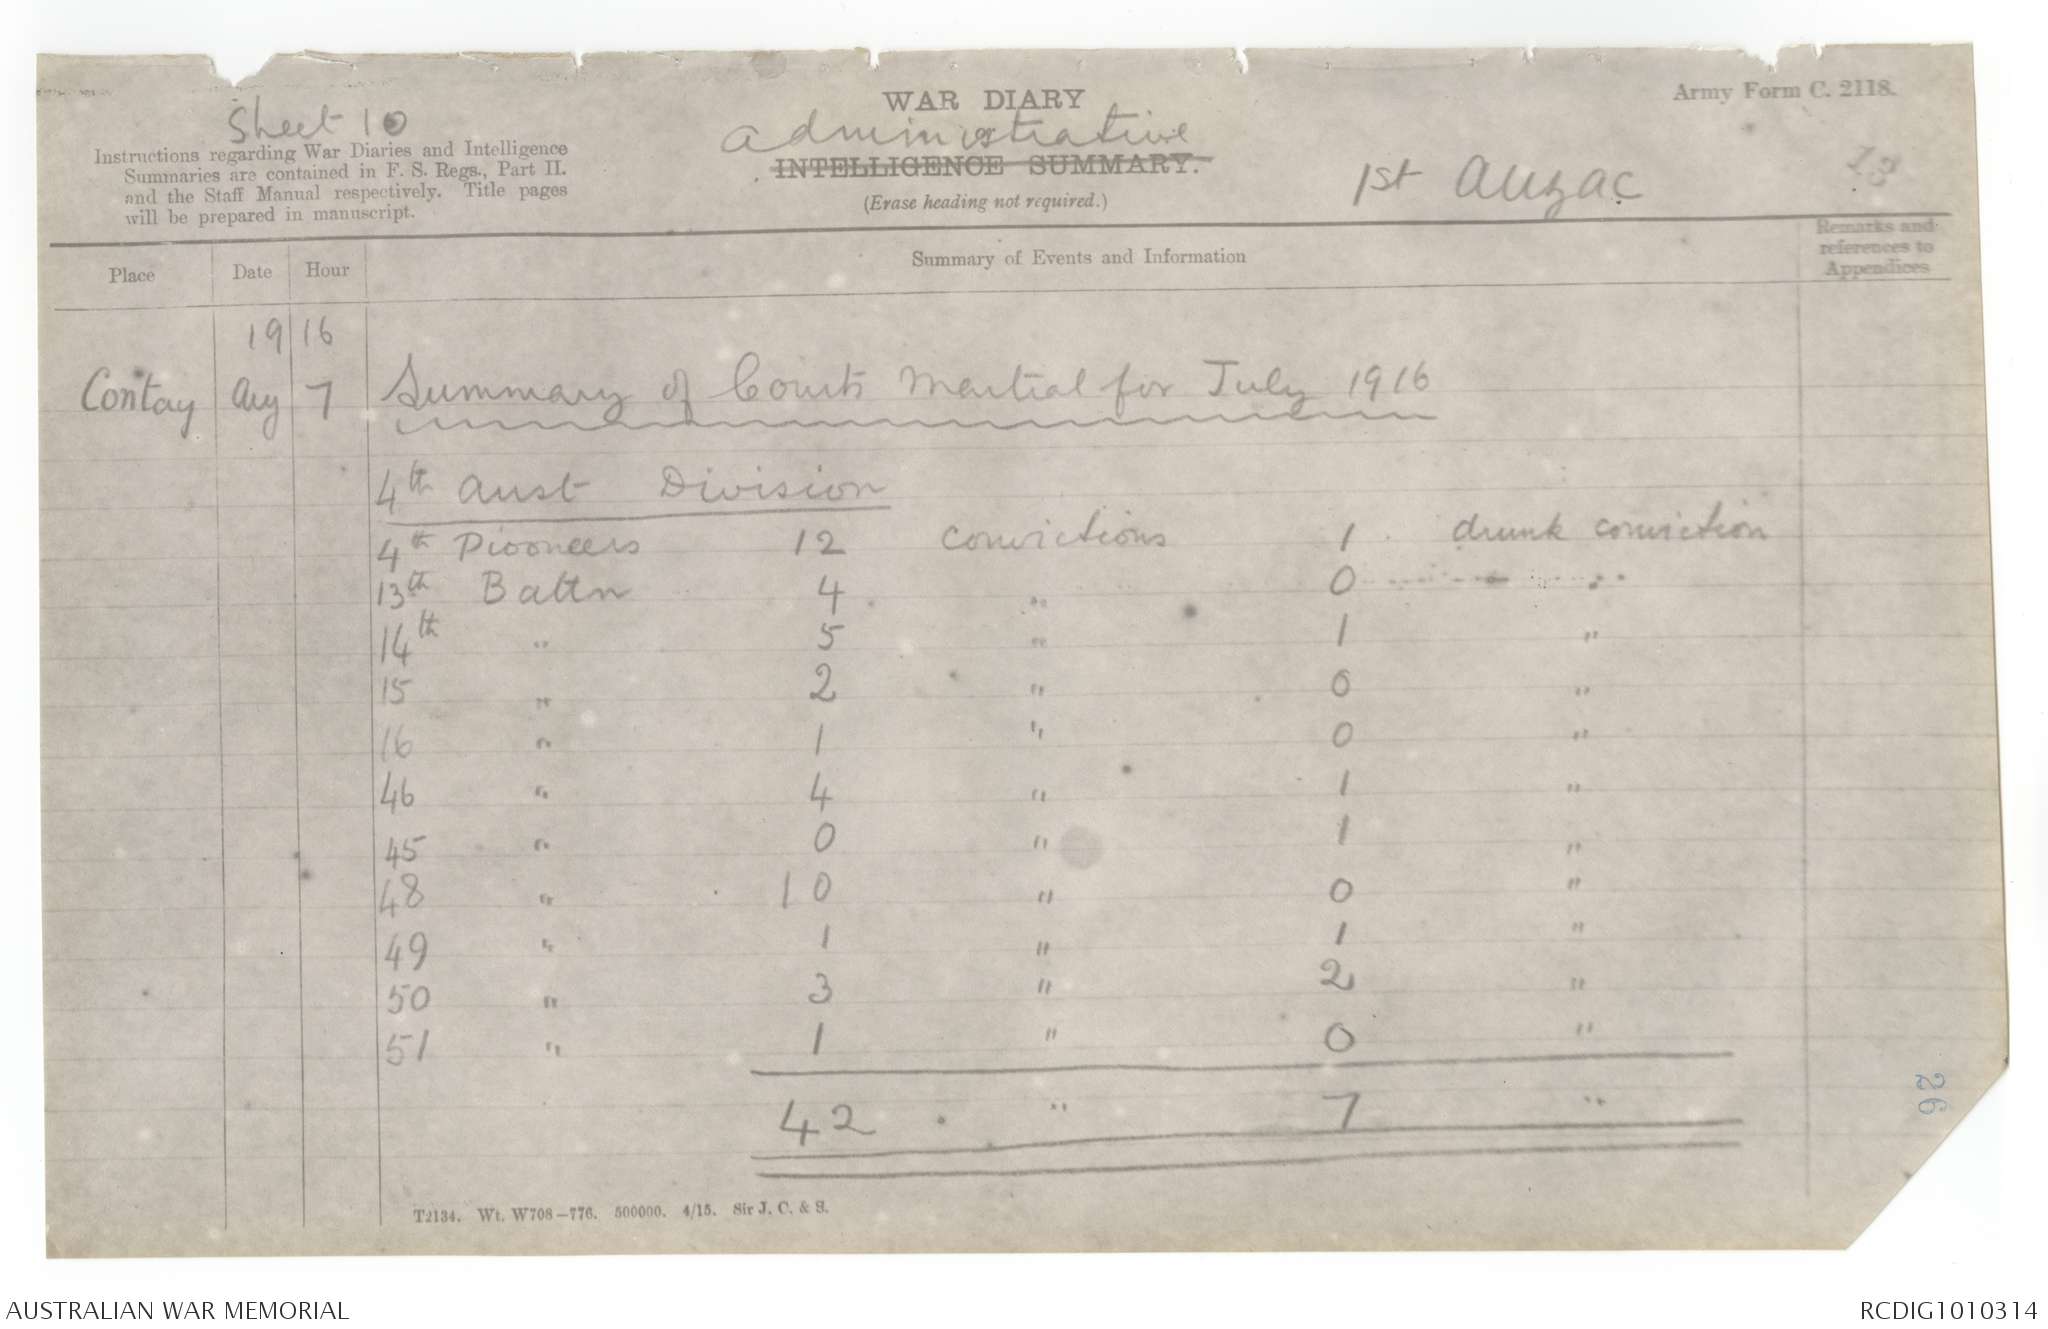 Sheet 10
WAR DIARY
Army Form C. 2118.
Administrative
or
INTELLIGENCE SUMMARY.
(Erase heading not required.)
Instructions regarding War Diaries and Intelligence
Summaries are contained in F. S. Regs., Part II.
and the Staff Manual respectively. Title pages
will be prepared in manuscript.
1st Anzac
Place Date Hour Summary of Events and Information Remarks and references to Appendices
1916
Contay Aug 7 Summary of Courts Martial for July 1916
4th Aust Division
4th Piooneers 12 convictions 1 drunk conviction
13th Battn 4 " 0 "
14th " 5 " 1 "
15 " 2 " 0 "
16 " 1 " 0 "
46 " 4 " 1 "
45 " 0 " 1 "
48 " 10 " 0 "
49 " 1 " 1 "
50 " 3 " 2 "
51 " 1 " 0 "
42 " 7 "
26
T2134. Wt. W708—776. 500000. 4/15. Sir J. C. & S.
AUSTRALIAN WAR MEMORIAL
RCDIG1010314